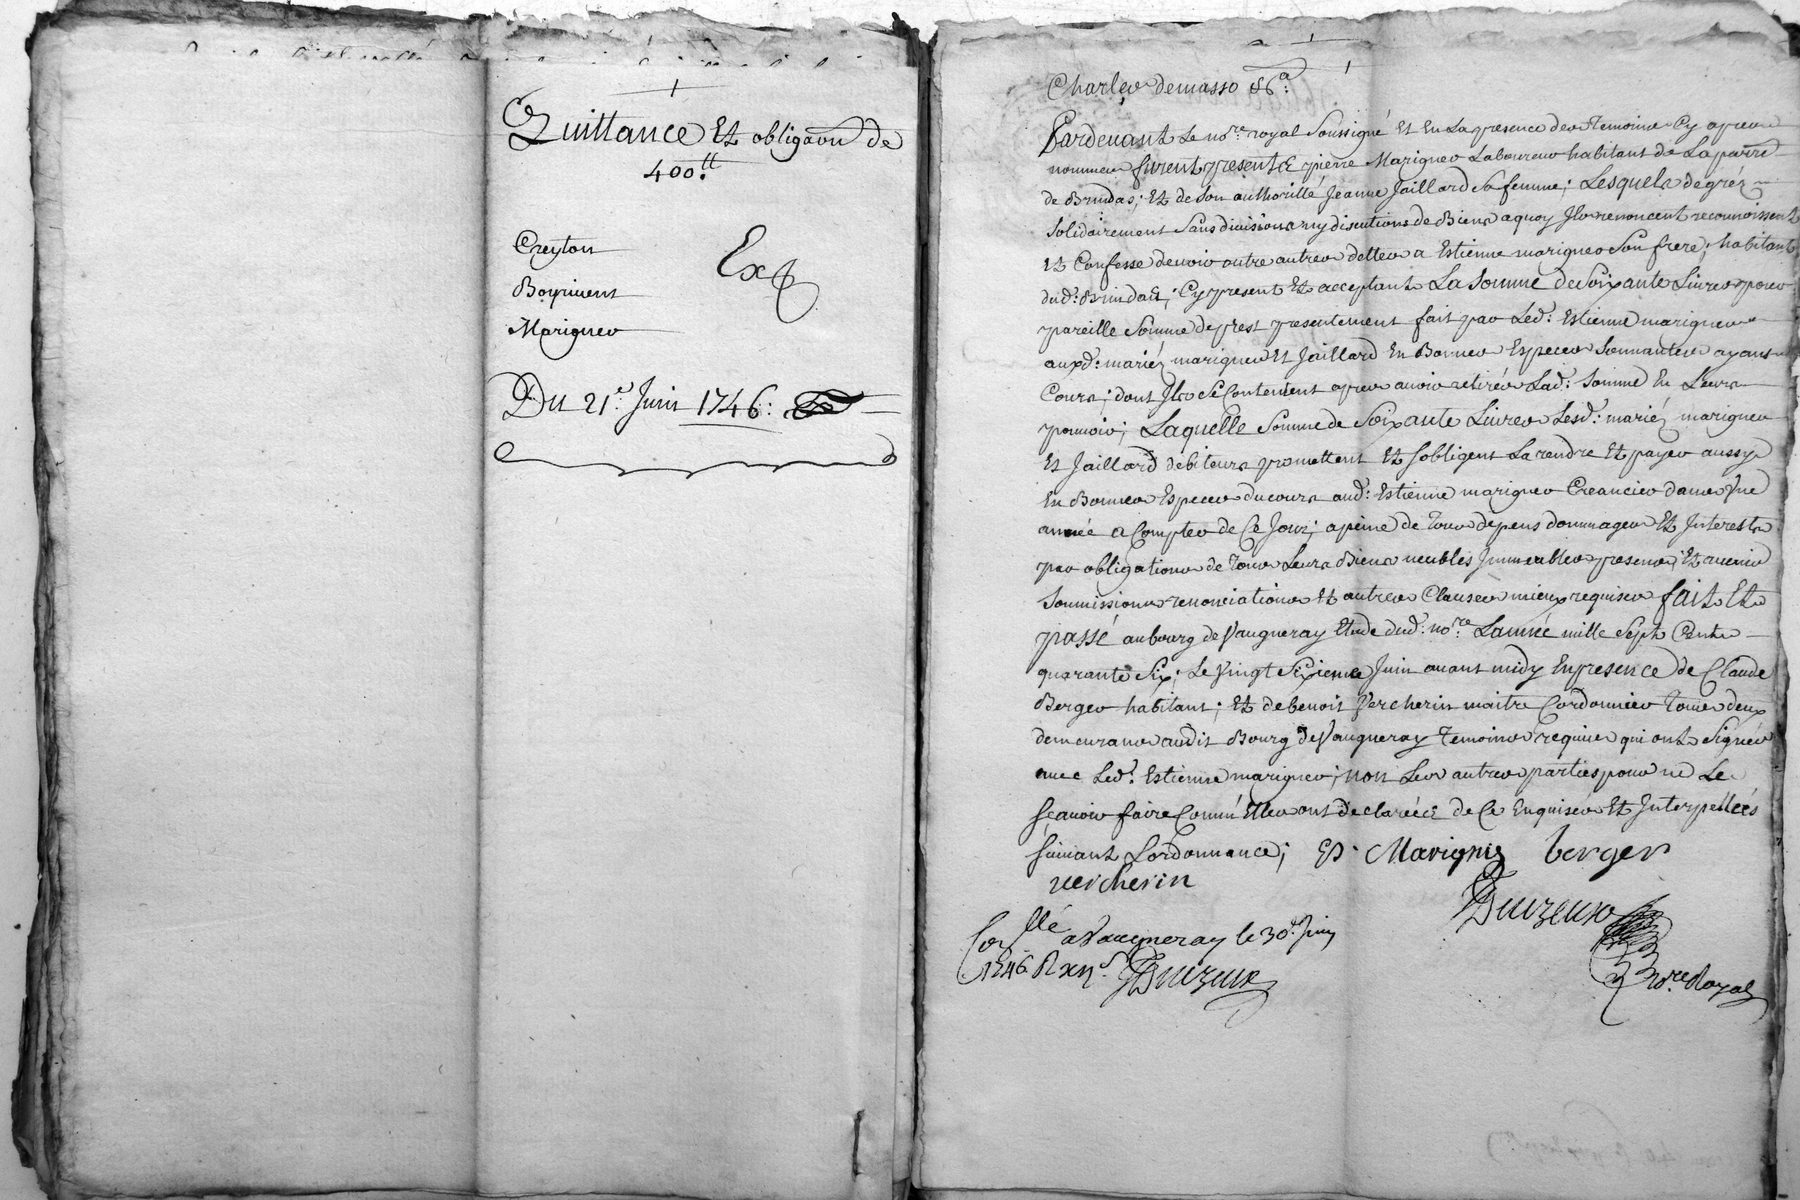 Quittance Et obligãon de
400.tt
Creyton
Boyrivent
Marignes
Exp
Du 21.e Juin 1746:
Charles demasso
Pardevant Le no.re royal Soussigné Et En La presence des Temoins Cy apres
nommes furent presents pierre Marignes Laboureur habitant de La parre
de Brindas; Et de Son authorité Jeanne Jaillard Sa femme; Lesquels de grez
Solidairement Sans division ny discutions de Biens a quoy Ils renoncent reconnoissent
Et Confesse devoir outre autres dettes a Estienne marignes Son frere; habitant
dud: Brindas; Cy present Et acceptant La Somme de Soixante Livres pour
pareille Somme de prest presentement fait par Led: Estienne marignes
auxd: mariéz marignes Et Jaillard En Bonnes Especes Sonnantes ayans
Cours; dont Ils Se Contentent apres avoir retirée Lad: Somme En Leurs
pouvoir; Laquelle Somme de Soixante Livres Lesd: mariéz marignes
Et Jaillard debiteurs promettent Et Sobligent La rendre Et payer aussy
En Bonnes Especes du cours aud: Estienne marignes Creancier dans Vne
année a Compter de Ce Jour; a peine de Tous depens dommages Et Interests
par obligations de Tous Leurs Biens meubles Immeubles presens; Et avenir
Soumissions renonciations Et autres Clauses mieux requises fait Et
passé au bourg de Vaugneray Etude dud: no.re Lannée mille Sept Cents
quarante Six; Le Vingt Sixieme Juin avant midy En presence de Claude
Berger habitant; Et de benoit Vercherin maitre Cordonnier Tous deux
demeurans audit Bourg de Vaugneray Temoins requis qui ont Signés
avec Led: Estienne marignes; non Les autres parties pour ne Le
sçavoir faire Comm' Elles ont declarées de Ce Enquises Et Interpellées
Suivant Lordonnance; Es. Marignis berger
vercherin
Duizeux
no.re Royal
Con.llé a Vaugneray le 30.e Juin
1746. Duizeux